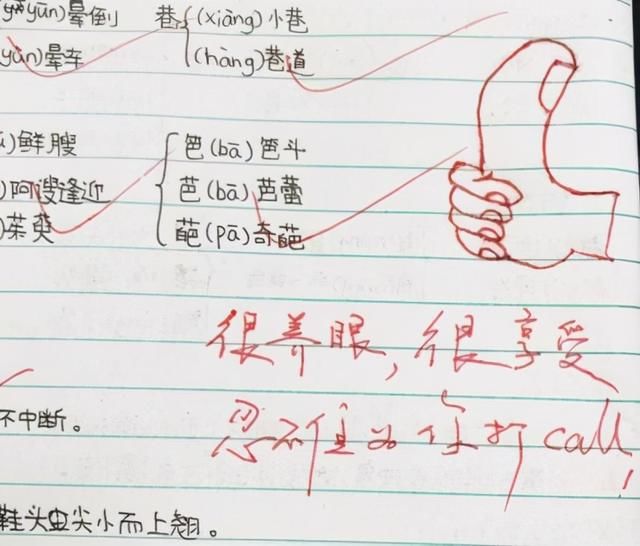 yūn)晕倒 巷 (xiàng)小巷
yùn)晕车 (hàng)巷道
)鲜艘
)阿谀逢迎
)茱萸
笆(bā)笆斗
芭(bā)芭蕾
葩(pā)奇葩
很养眼,很享受
忍不住为你打call!
不中断。
鞋头虫尖小而上翘。